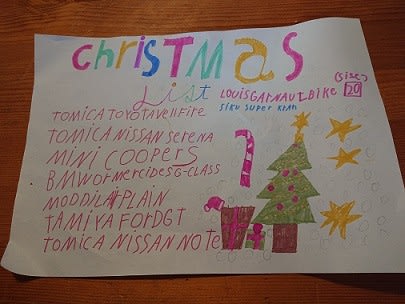 chrisTMas
List
LOUISGARNAUTBIKE (Size) 20
SIKU SUPER KRAN
TOMICA TOYOTA VellFire
TOMICA NISSAN Serena
MINI COOPERS
BMW or MERCIDES G-CLASS
MODDILAPLAIN
TAMIYA FORDGT
TOMICA NISSAN NOTE